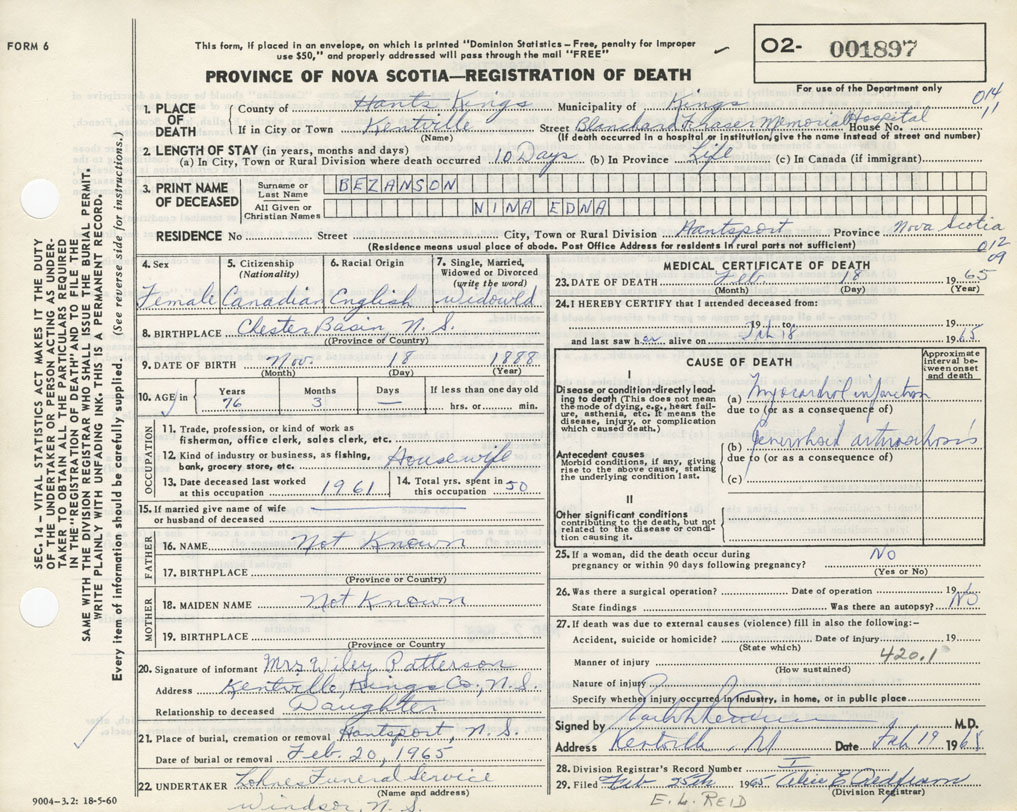 FORM 6
This form, if placed in an envelope, on which is printed "Dominion Statistics – Free, penalty for improper
use $50," and properly addressed will pass through the mail "FREE"
O2- 001897
PROVINCE OF NOVA SCOTIA—REGISTRATION OF DEATH
For use of the Department only
014
11
1. PLACE OF DEATH
County of Hants Kings Municipality of Kings
If in City or Town Kentville Street Blanchard Fraser Memorial Hospital House No.
(Name) (If death occurred in a hospital or institution, give the name instead of street and number)
2. LENGTH OF STAY (in years, months and days)
(a) In City, Town or Rural Division where death occurred 10 Days (b) In Province Life (c) In Canada (if immigrant)
3. PRINT NAME OF DECEASED
Surname or Last Name BEZANSON
All Given or Christian Names NINA EDNA
RESIDENCE No Street City, Town or Rural Division Hantsport Province Nova Scotia
(Residence means usual place of abode. Post Office Address for residents in rural parts not sufficient)
012
09
4. Sex Female
5. Citizenship (Nationality) Canadian
6. Racial Origin English
7. Single, Married, Widowed or Divorced (write the word) Widowed
8. BIRTHPLACE Chester Basin, N. S.
(Province or Country)
9. DATE OF BIRTH Nov. 18 1888
(Month) (Day) (Year)
10. AGE in Years 76 Months 3 Days — If less than one day old hrs. or min.
OCCUPATION
11. Trade, profession, or kind of work as fisherman, office clerk, sales clerk, etc.
12. Kind of industry or business, as fishing, bank, grocery store, etc. Housewife
13. Date deceased last worked at this occupation 1961
14. Total yrs. spent in this occupation 50
15. If married give name of wife or husband of deceased
FATHER
16. NAME Not Known
17. BIRTHPLACE
(Province or Country)
MOTHER
18. MAIDEN NAME Not Known
19. BIRTHPLACE
(Province or Country)
20. Signature of informant Mrs Wiley Patterson
Address Kentville, Kings Co., N.S.
Relationship to deceased Daughter
21. Place of burial, cremation or removal Hantsport N. S.
Date of burial or removal Feb. 20, 1965
22. UNDERTAKER Lohnes Funeral Service
(Name and address)
Windsor, N. S.
MEDICAL CERTIFICATE OF DEATH
23. DATE OF DEATH Feb 18 1965
(Month) (Day) (Year)
24. I HEREBY CERTIFY that I attended deceased from:
19 to:
and last saw her alive on Feb 18 1965
CAUSE OF DEATH
Approximate interval between onset and death
I
Disease or condition directly leading to death (This does not mean the mode of dying, e.g., heart failure, asthenia, etc. It means the disease, injury, or complication which caused death.)
(a) Myocardial infarction
due to (or as a consequence of)
Antecedent causes
Morbid conditions, if any, giving rise to the above cause, stating the underlying condition last.
(b)
due to (or as a consequence of)
(c)
II
Other significant conditions
contributing to the death, but not related to the disease or condition causing it.
25. If a woman, did the death occur during pregnancy or within 90 days following pregnancy? No
(Yes or No)
26. Was there a surgical operation? Date of operation 19
State findings Was there an autopsy? No
27. If death was due to external causes (violence) fill in also the following:–
Accident, suicide or homicide? Date of injury 19
(State which)
Manner of injury 420.1
(How sustained)
Nature of injury
Specify whether injury occurred in industry, in home, or in public place
Signed by M.D.
Address Kentville Date Feb 19 1965
28. Division Registrar's Record Number I
29. Filed Feb 25th 1965
(Division Registrar)
E. L. REID
SEC. 14 – VITAL STATISTICS ACT MAKES IT THE DUTY
OF THE UNDERTAKER OR PERSON ACTING AS UNDER-
TAKER TO OBTAIN ALL THE PARTICULARS REQUIRED
IN THE "REGISTRATION OF DEATH" AND TO FILE THE
SAME WITH THE DIVISION REGISTRAR WHO SHALL ISSUE THE BURIAL PERMIT.
WRITE PLAINLY WITH UNFADING INK. THIS IS A PERMANENT RECORD.
Every item of information should be carefully supplied. (See reverse side for instructions.)
9004-3.2: 18-5-60